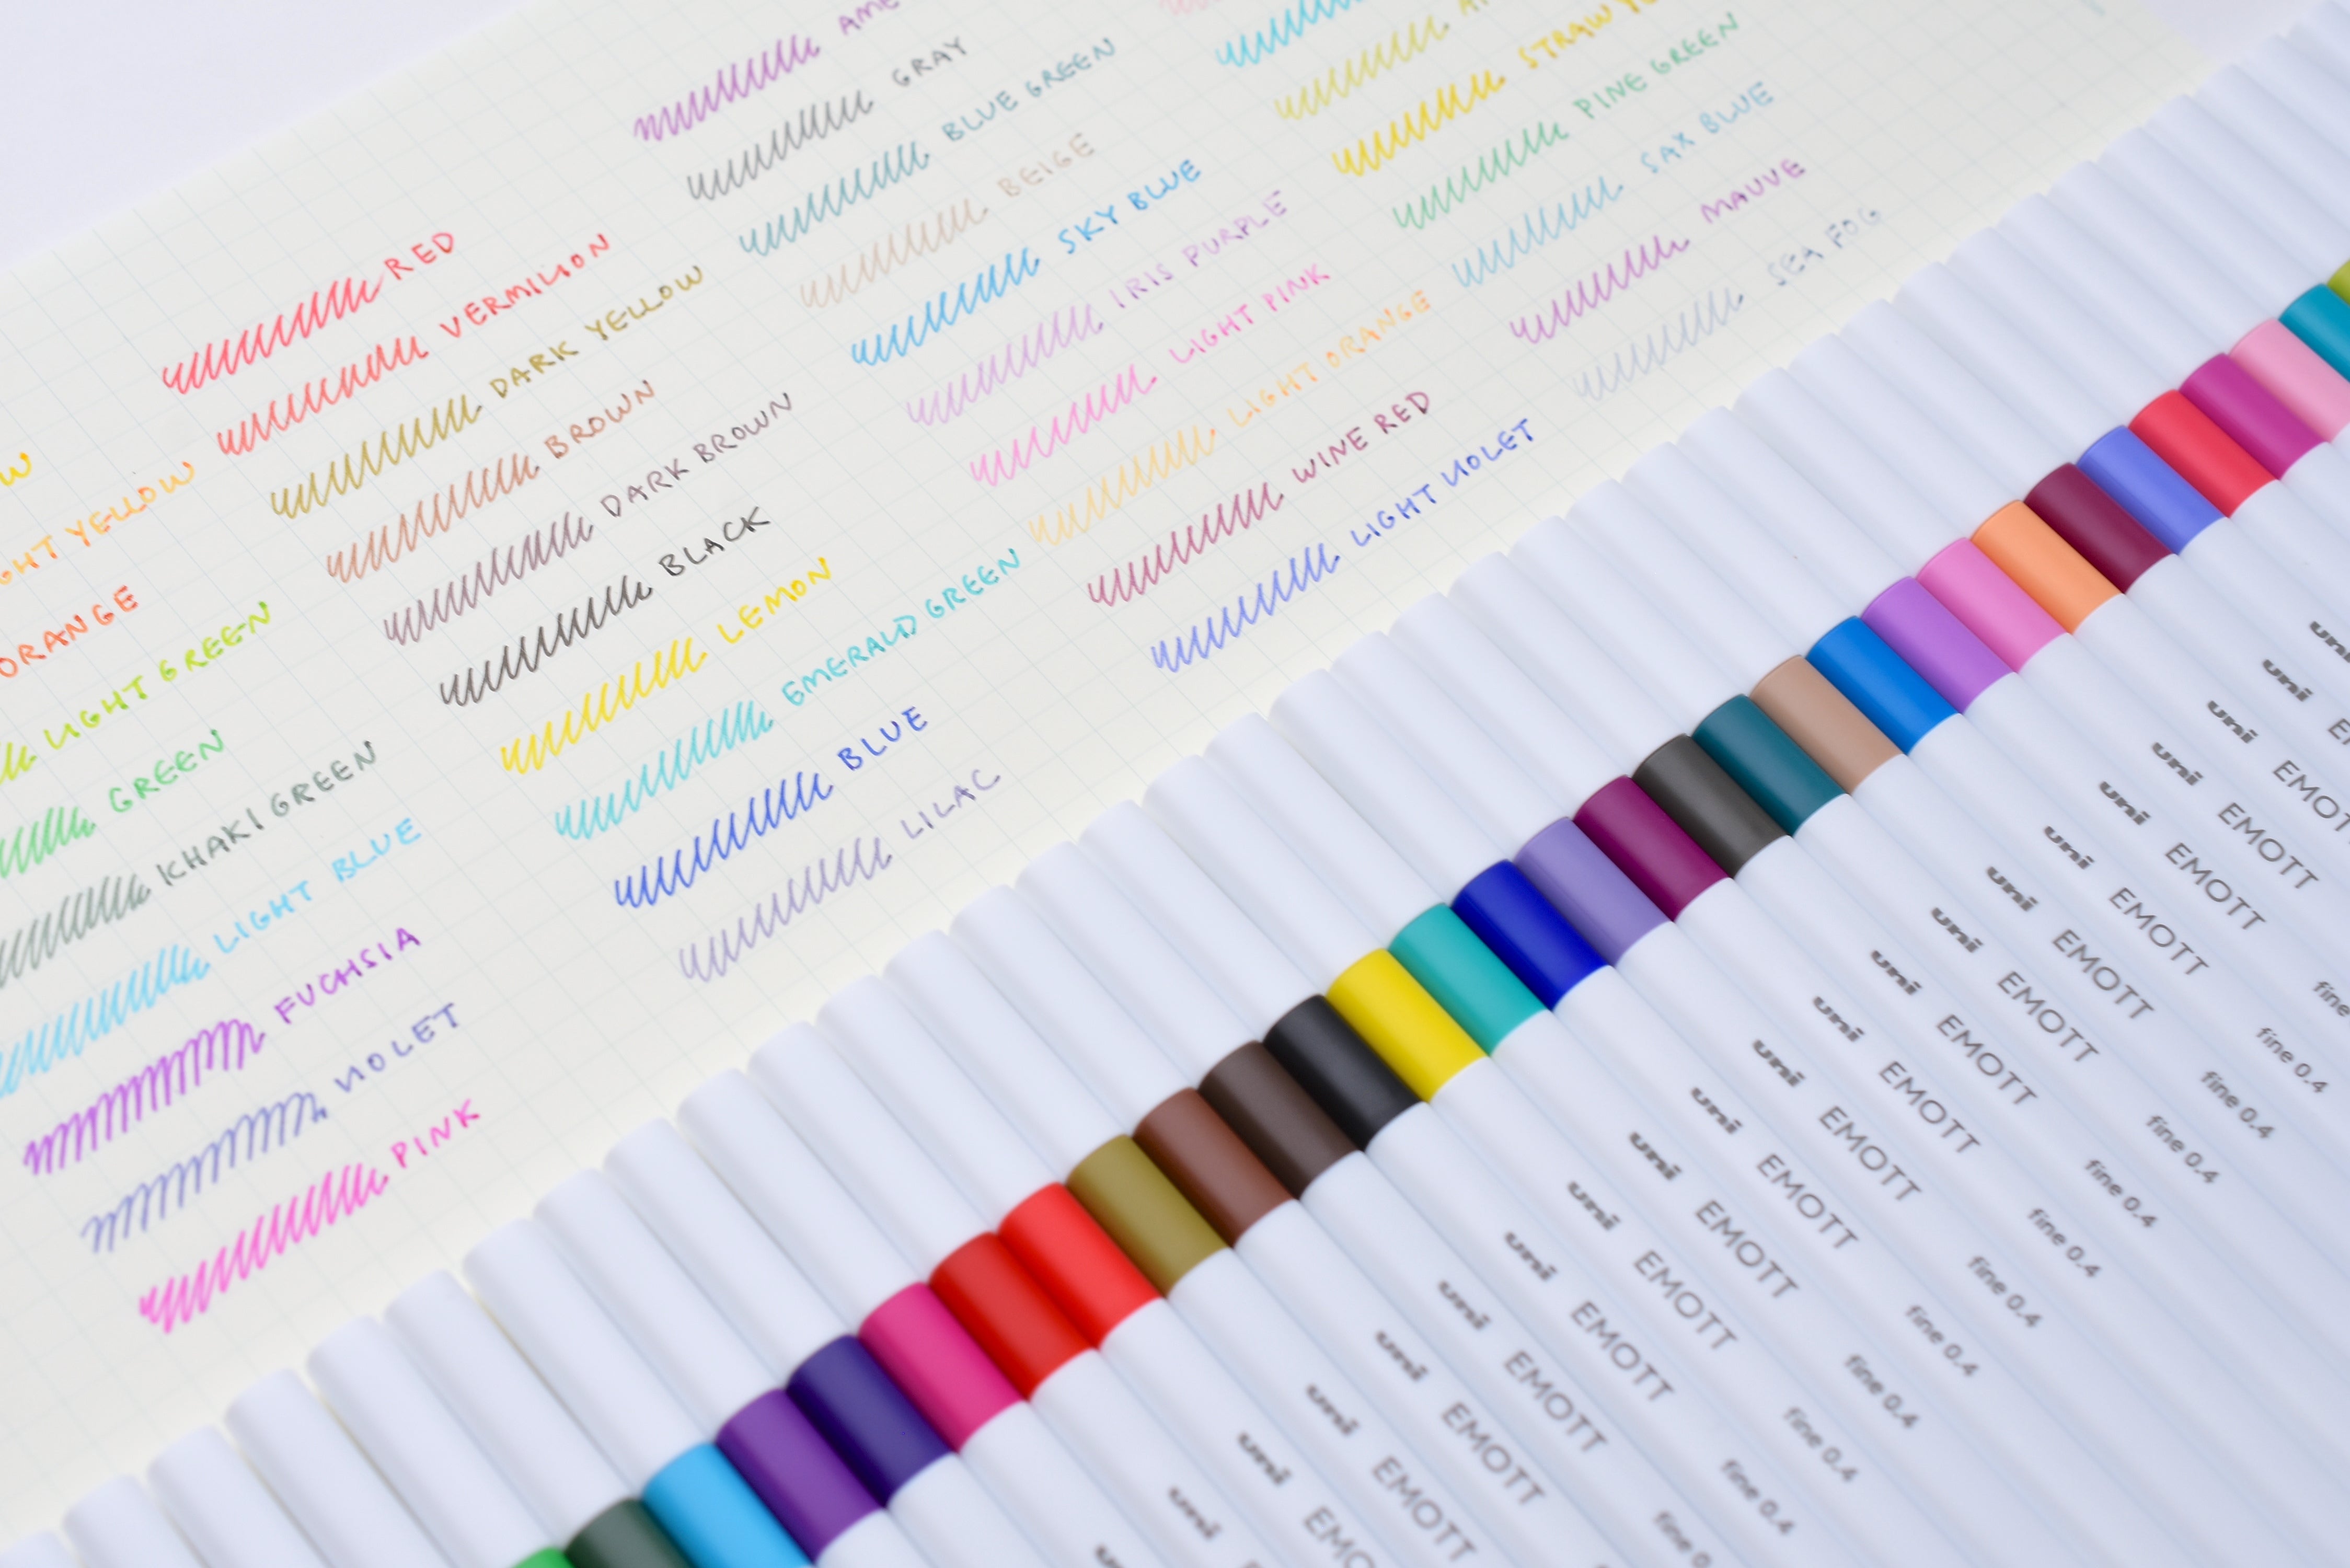 RED
VERMILION
DARK YELLOW
BROWN
DARK BROWN
BLACK
LEMON
EMERALD GREEN
BLUE
LILAC
YELLOW
ORANGE
LIGHT GREEN
GREEN
KHAKI GREEN
LIGHT BLUE
FUCHSIA
VIOLET
PINK
GRAY
BLUE GREEN
BEIGE
SKY BLUE
IRIS PURPLE
LIGHT PINK
LIGHT ORANGE
WINE RED
LIGHT VIOLET
STRAW
PINE GREEN
SAX BLUE
MAUVE
SEA FOG
uni
uni
uni EMOTT
uni EMOTT fine
uni EMOTT fine 0.4
uni EMOTT fine 0.4
uni EMOTT fine 0.4
uni EMOTT fine 0.4
uni EMOTT fine 0.4
uni EMOTT fine 0.4
uni EMOTT fine 0.4
uni EMOTT fine 0.4
uni EMOTT fine 0.4
uni EMOTT fine 0.4
uni EMOTT fine
uni EMOTT
uni EMOTT
uni
uni